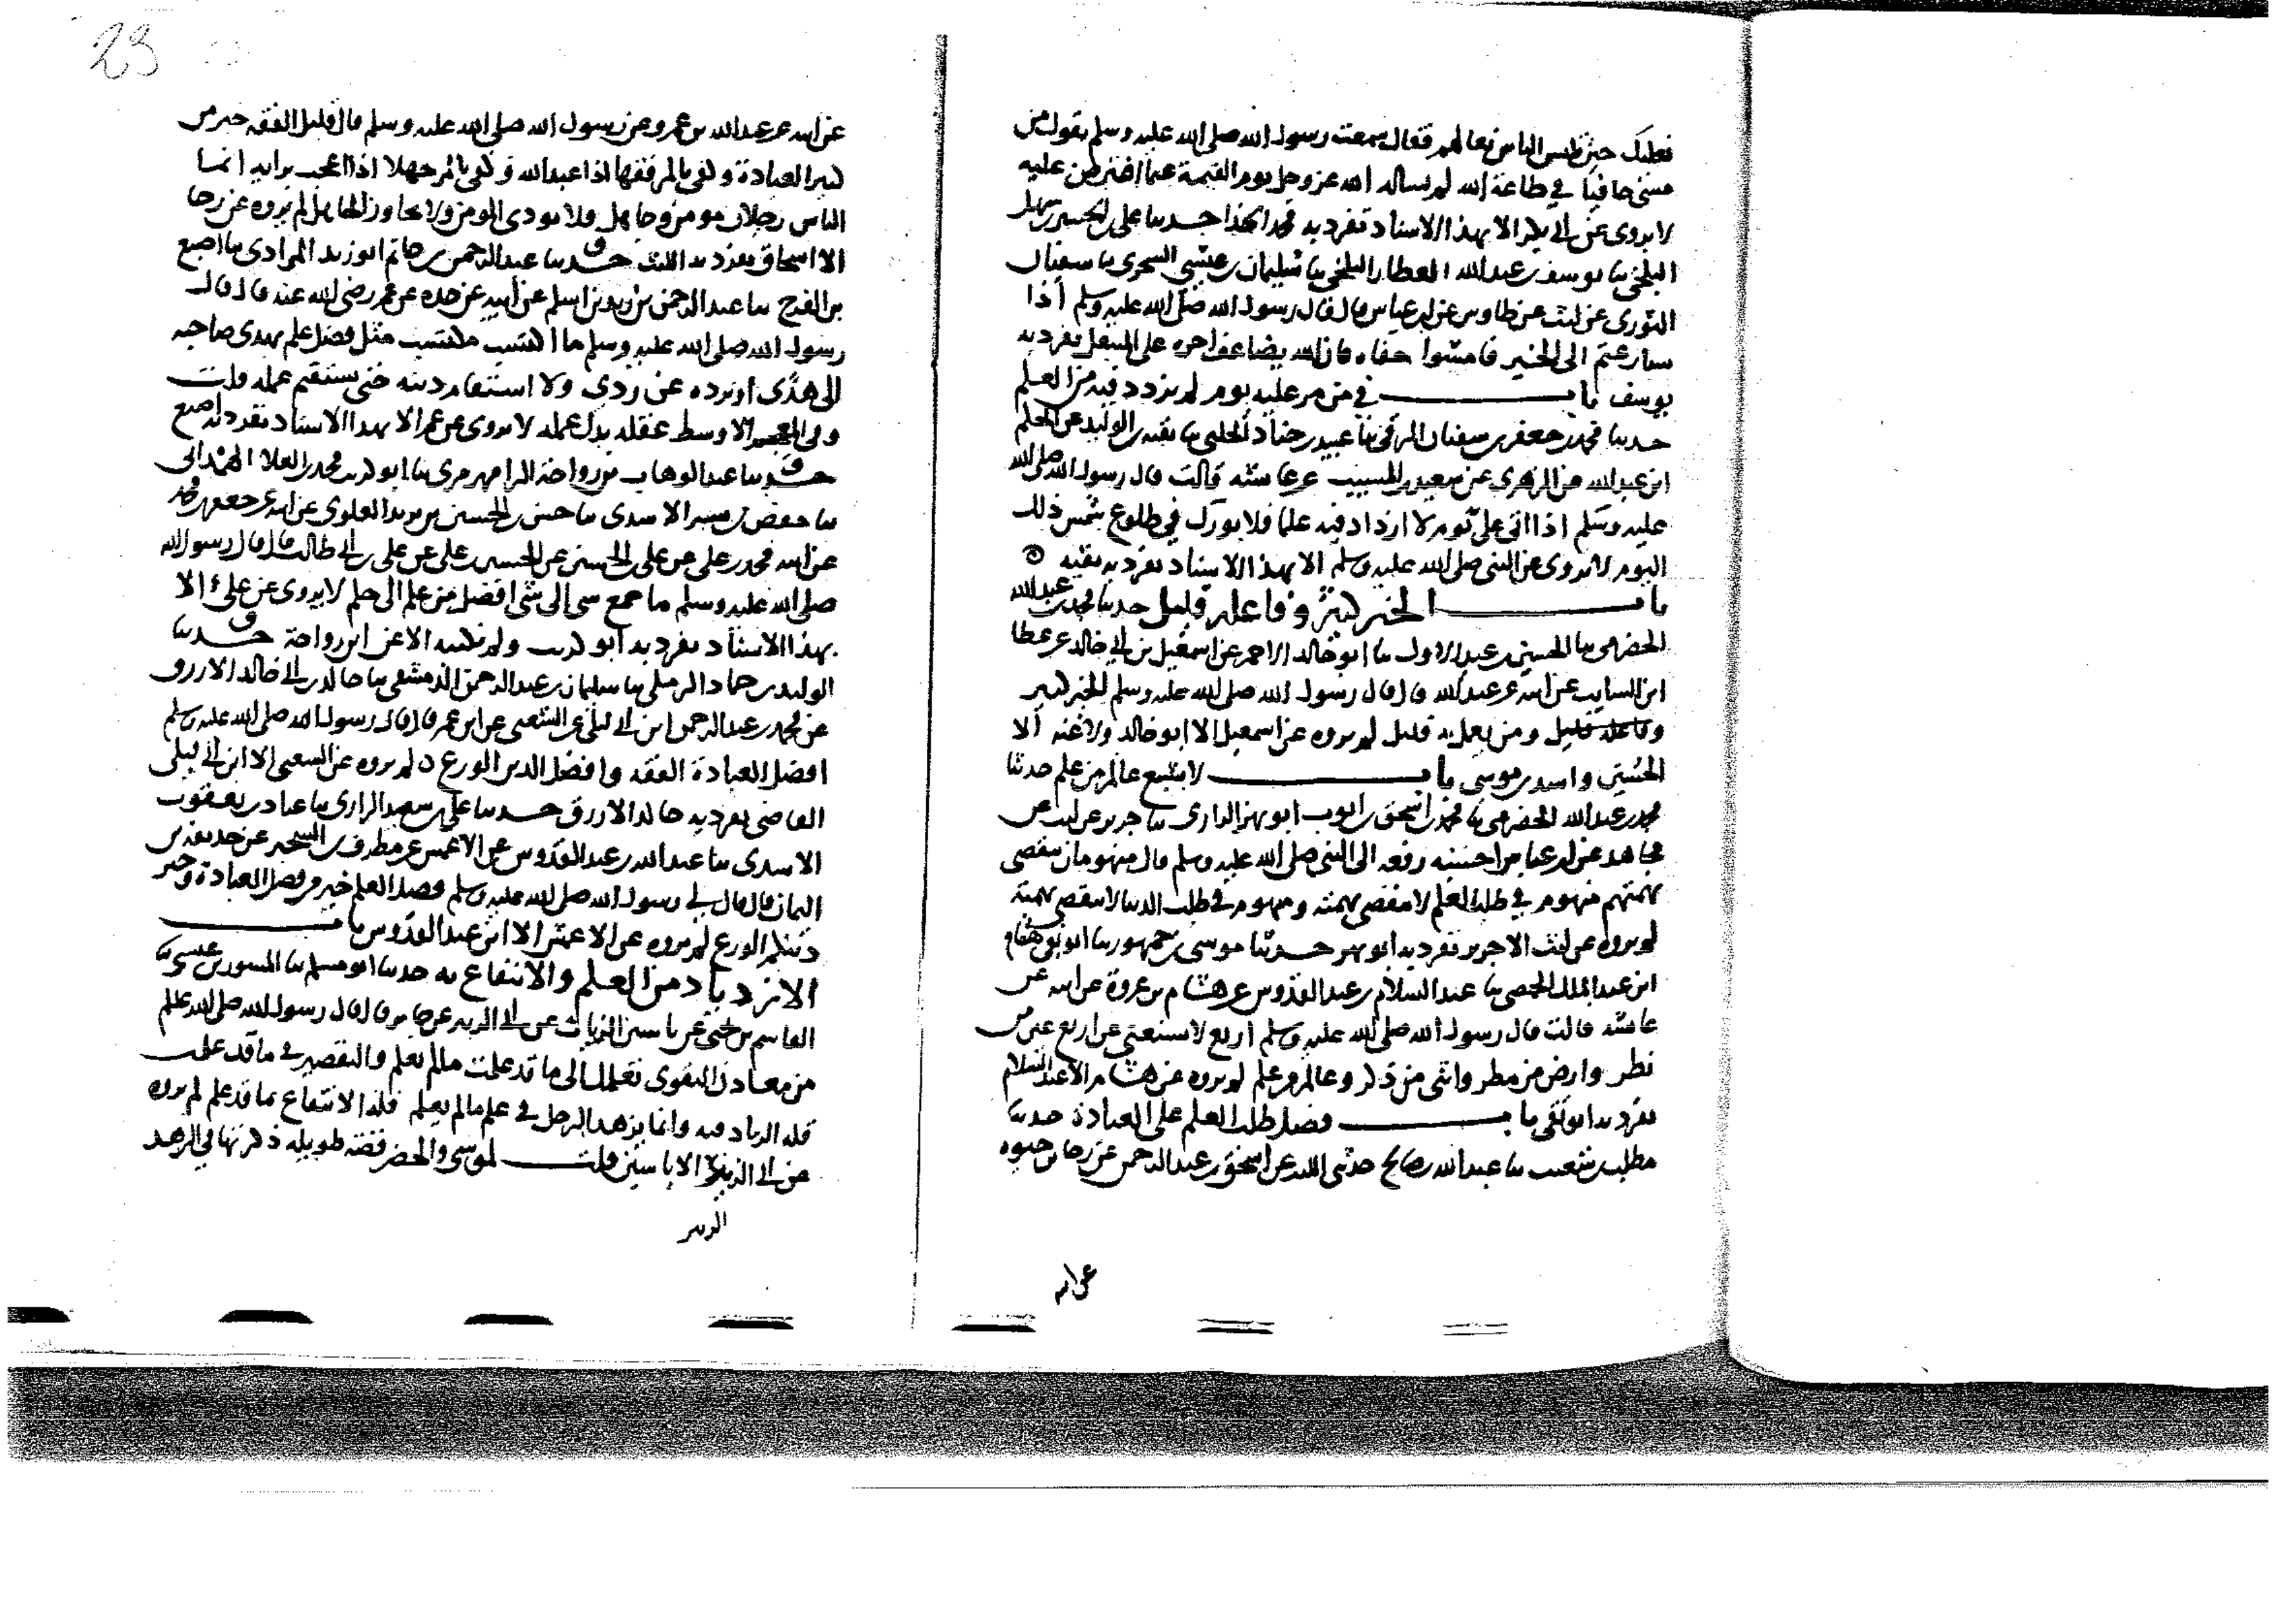 نعليك حين طس الناس نعالهم فقال سمعت رسول الله صلى الله عليه وسلم يقول من
مشى حافيا في طاعة الله لم يساله الله عز وجل يوم القيمة عما افترض عليه
لا يروى عن ابي بكر الا بهذا الاسناد تفرد به محمد الحذا حدثنا علي بن الحسين بن سهل
البلخي ثنا يوسف بن عبد الله العطار البلخي ثنا سليمان بن عيسى السجزي ثنا سفيان
الثوري عن ليث عن طاوس عن ابن عباس قال قال رسول الله صلى الله عليه وسلم اذا
سارعتم الى الخير فامشوا حفاه فان الله يضاعف اجره على المنتعل تفرد به
يوسف باب في من مر عليه يوم لم يزدد فيه من العلم
حدثنا محمد بن جعفر بن سفيان الرقي ثنا عبيد بن جناد الحلبي ثنا بقية بن الوليد عن الحكم
ابن عبد الله عن الزهري عن سعيد بن المسيب عن عائشه قالت قال رسول الله صلى الله
عليه وسلم اذا اتى علي يوم لا ازداد فيه علما فلا بورك في طلوع شمس ذلك
اليوم لا يروى عن النبي صلى الله عليه وسلم الا بهذا الاسناد تفرد به بقيه
باب الخير كثير وفاعله قليل حدثنا محمد بن عبد الله
الحضرمي ثنا الحسين بن عبد الاول ثنا ابو خالد الاحمر عن اسمعيل بن ابي خالد عن عطا
ابن السايب عن ابيه عن عبد الله قال قال رسول الله صلى الله عليه وسلم الخير كثير
وفاعله قليل ومن يعمل به قليل لم يروه عن اسمعيل الا ابو خالد ولا عنه الا
الحسين واسد بن موسى باب لا يشبع عالم من علم حدثنا
محمد بن عبد الله الحضرمي ثنا محمد بن اسحق بن ايوب ابو بهز الداري ثنا جرير عن ليث عن
مجاهد عن ابن عباس احسبه رفعه الى النبي صلى الله عليه وسلم قال منهومان تنقضي
نهمتهم منهوم في طلب العلم لا تنقضي نهمته ومنهوم في طلب الدنيا لا تنقضي نهمته
لم يروه عن ليث الا جرير تفرد به ابو بهز حدثنا موسى بن جمهور ثنا ابو تقي هشام
ابن عبد الملك الحمصي ثنا عبد السلام بن عبد القدوس عن هشام بن عروة عن ابيه عن
عائشه قالت قال رسول الله صلى الله عليه وسلم اربع لا يستغني عن اربع عين من
نظر وارض من مطر وانثى من ذكر وعالم من علم لم يروه عن هشام الا عبد السلام
تفرد به ابو تقي باب فضل طلب العلم على العبادة حدثنا
مطلب بن شعيب ثنا عبد الله بن صالح حدثني الليث عن اسحق بن عبد الرحمن عن رجا بن حيوه
عن ابيه
23
عن ابيه عن عبد الله بن عمرو عن رسول الله صلى الله عليه وسلم قال قليل الفقه خير من
كثير العبادة وكفى بالمرء فقها اذا عبد الله وكفى بالمرء جهلا اذا اعجب برايه انما
الناس رجلان مومن وجاهل فلا يوذى المومن ولا يحاور الجاهل لم يروه عن رجا
الا اسحاق تفرد به الليث حدثنا عبد الرحمن بن حاتم ابو زيد المرادي ثنا اصبغ
بن الفرج ثنا عبد الرحمن بن زيد بن اسلم عن ابيه عن جده عن عمر رضي الله عنه قال قال
رسول الله صلى الله عليه وسلم ما اكتسب مكتسب مثل فضل علم يهدي صاحبه
الى هدى او يرده عن ردى ولا استقام دينه حتى يستقيم عمله قلت
وفي الاوسط عقله بدل عمله لا يروى عن عمر الا بهذا الاسناد تفرد به اصبغ
حدثنا عبد الوهاب بن رواحة الرامهرمزي ثنا ابو كريب محمد بن العلا الهمداني
ثنا حفص بن بشر الاسدي ثنا حسن بن الحسين بن زيد العلوي عن ابيه عن جعفر بن محمد
عن ابيه محمد بن علي عن علي بن الحسين عن الحسين بن علي عن علي بن ابي طالب قال قال رسول الله
صلى الله عليه وسلم ما جمع شي الى شي افضل من علم الى حلم لا يروى عن علي الا
بهذا الاسناد تفرد به ابو كريب ولم نكتبه الا عن ابن رواحة حدثنا
الوليد بن حماد الرملي ثنا سليمان بن عبد الرحمن الدمشقي ثنا خالد بن ابي خالد الازرق
عن محمد بن عبد الرحمن ابن ابي ليلى عن الشعبي عن ابن عمر قال قال رسول الله صلى الله عليه وسلم
افضل العبادة الفقه وافضل الدين الورع لم يروه عن الشعبي الا ابن ابي ليلى
القاضي تفرد به خالد الازرق حدثنا علي بن سعيد الرازي ثنا عباد بن يعقوب
الاسدي ثنا عبد الله بن عبد القدوس عن الاعمش عن مطرف بن الشخير عن حذيفة بن
اليمان قال قال لي رسول الله صلى الله عليه وسلم فضل العلم خير من فضل العبادة وخير
دينكم الورع لم يروه عن الاعمش الا ابن عبد القدوس باب
الازدياد من العلم والانتفاع به حدثنا ابو مسلم ثنا المسور بن عيسى ثنا
القاسم بن يحيى عن ياسين الزيات عن ابي الزبير عن جابر قال قال رسول الله صلى الله عليه وسلم
من معادن التقوى تعلمك الى ما قد علمت ما لم تعلم والتقصير في ما قد علمت
قلة الزياد فيه وانما يزهد الرجل في علم ما لم يعلم قلة الانتفاع بما قد علم لم يروه
عن ابي الزبير الا ياسين قلت لموسى والخضر قصة طويلة ذكرتها في الزهد